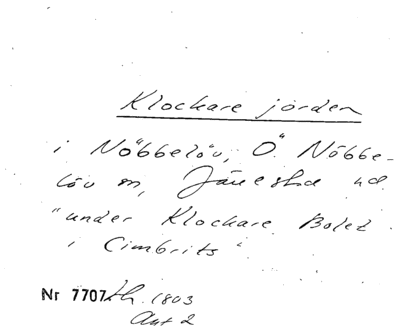 Klockare jorden
i Nöbbelöv, Ö. Nöbbe-
löv sn, Järresta hd
"under Klockare Bolet
i Cimbrits".
Nr 7707 Lh. 1803
Akt 2